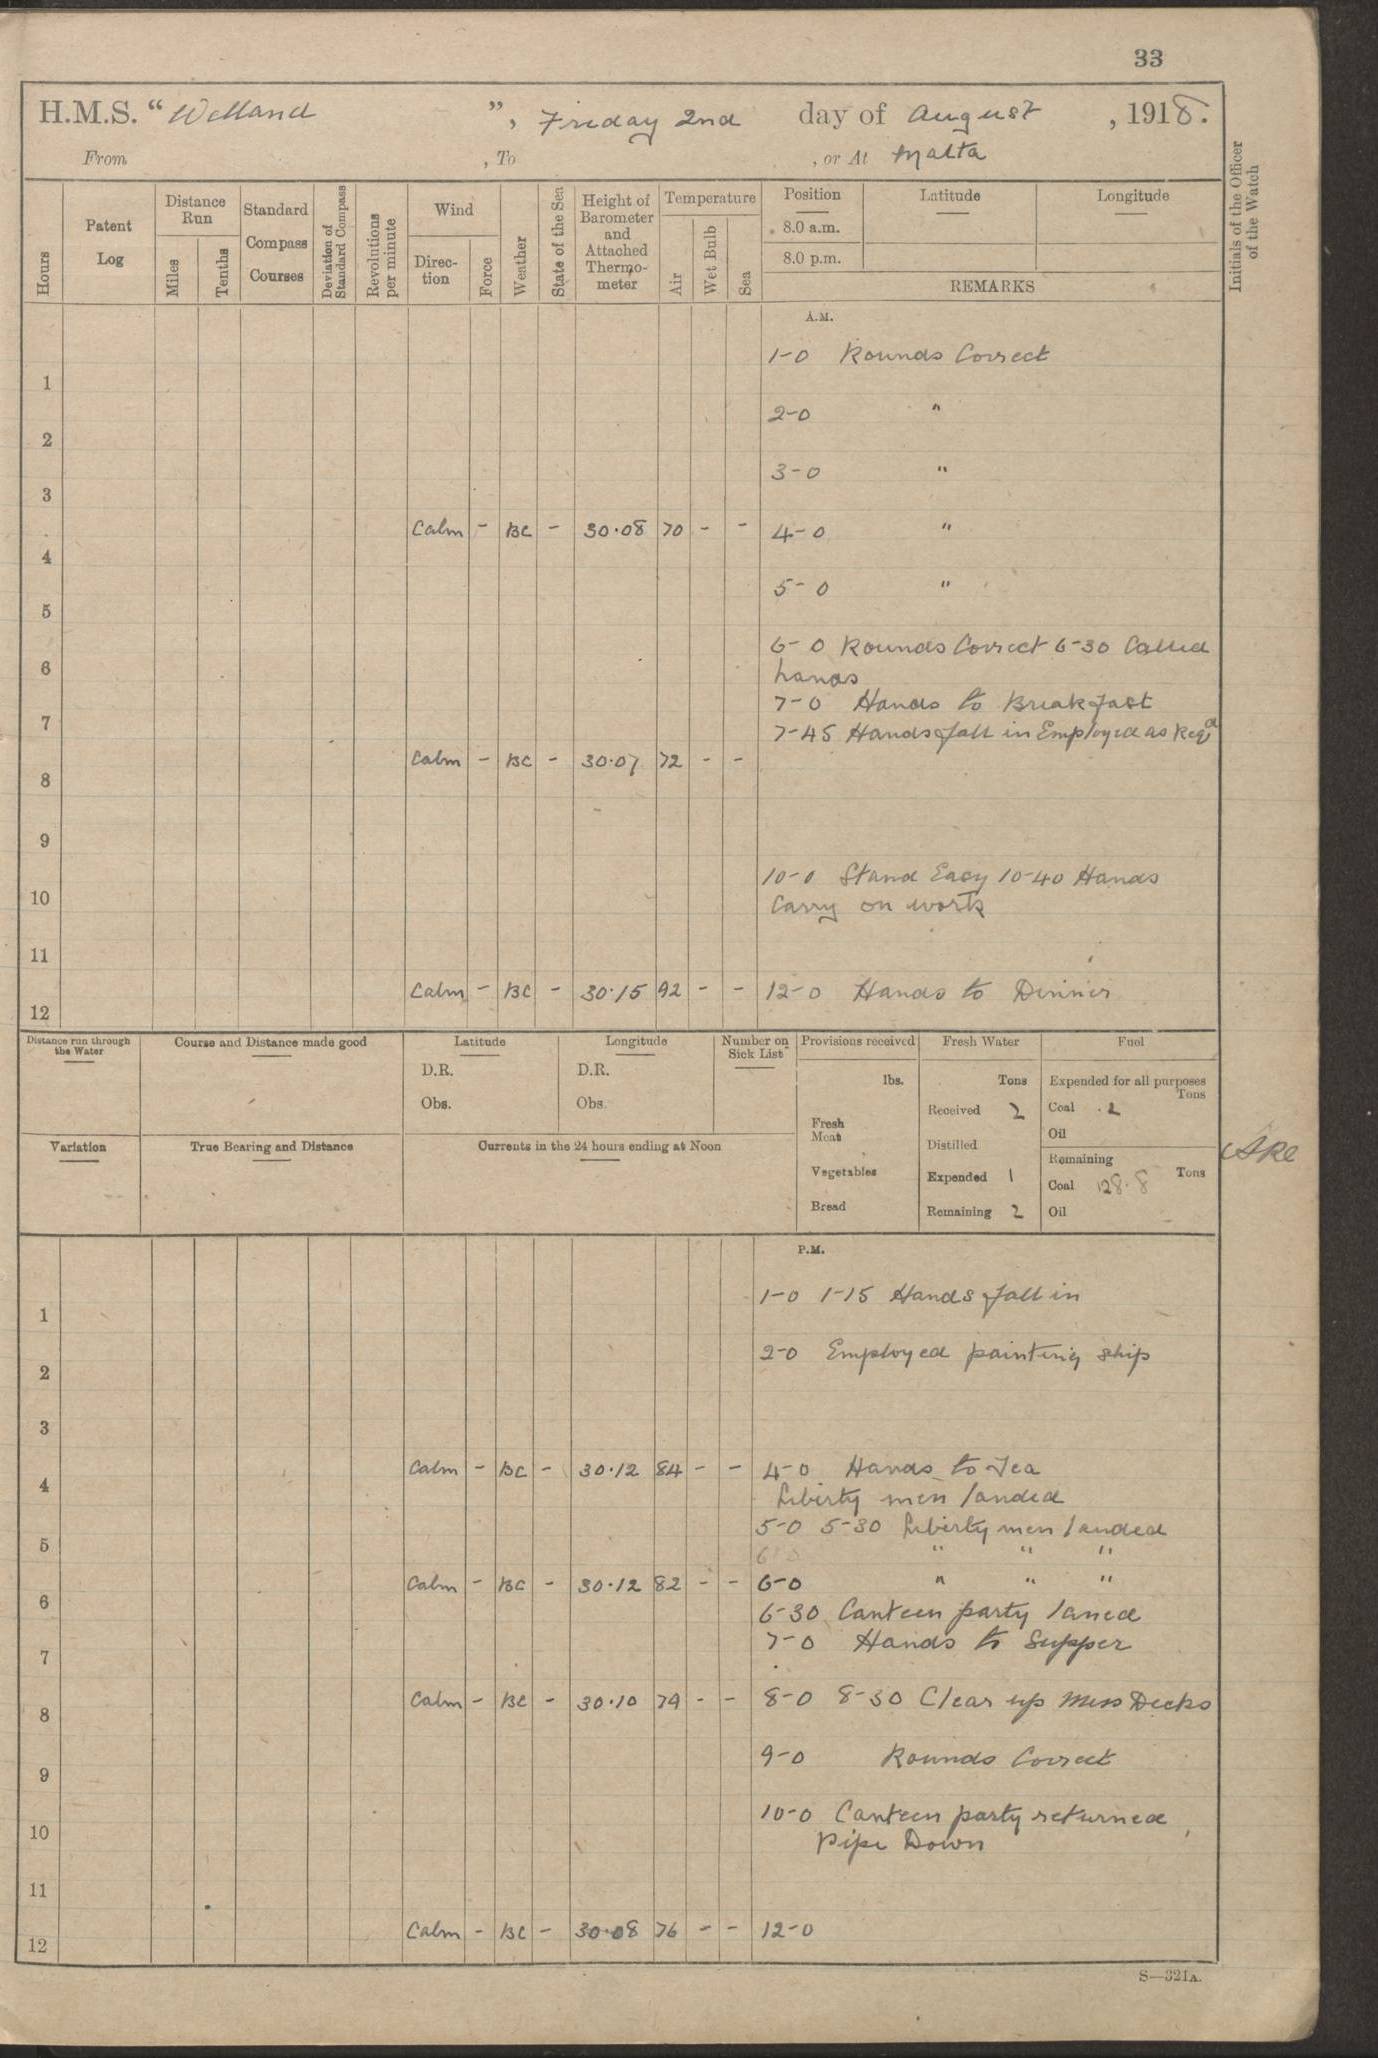 33
H.M.S. “Welland”, Friday 2nd day of August, 1918.
From , To , or At Malta
Hours
Patent Log
Distance Run
Miles
Tenths
Standard Compass Courses
Deviation of Standard Compass
Revolutions per minute
Wind
Direc-tion
Force
Weather
State of the Sea
Height of Barometer and Attached Thermo-meter
Temperature
Air
Wet Bulb
Sea
Position
8.0 a.m.
8.0 p.m.
Latitude
Longitude
REMARKS
Initials of the Officer of the Watch
A.M.
1-0 Rounds Correct
1
2-0 "
2
3-0 "
3
Calm - BC - 30.08 70 - - 4-0 "
4
5-0 "
5
6-0 Rounds Correct 6-30 Called
6
hands
7-0 Hands to Breakfast
7
7-45 Hands fall in Employed as Reqd
Calm - BC - 30.07 72 - -
8
9
10-0 Stand Easy 10-40 Hands
10
Carry on work
11
Calm - BC - 30.15 92 - - 12-0 Hands to Dinner
12
Distance run through the Water
Course and Distance made good
Latitude
D.R.
Obs.
Longitude
D.R.
Obs.
Number on Sick List
Provisions received
lbs.
Fresh Meat
Vegetables
Bread
Fresh Water
Tons
Received 2
Distilled
Expended 1
Remaining 2
Fuel
Expended for all purposes
Tons
Coal .2
Oil
Remaining
Tons
Coal 128.8
Oil
Variation
True Bearing and Distance
Currents in the 24 hours ending at Noon
P.M.
1-0 1-15 Hands fall in
1
2-0 Employed painting ship
2
3
Calm - BC - 30.12 84 - - 4-0 Hands to Tea
4
Liberty men landed
5-0 5-30 Liberty men landed
5
" " "
Calm - BC - 30.12 82 - - 6-0 " " "
6
6-30 Canteen party laned
7-0 Hands to Supper
7
Calm - BC - 30.10 79 - - 8-0 8-30 Clear up Mess Decks
8
9-0 Rounds Correct
9
10-0 Canteen party returned
10
Pipe Down
11
Calm - BC - 30.08 76 - - 12-0
12
S—321A.